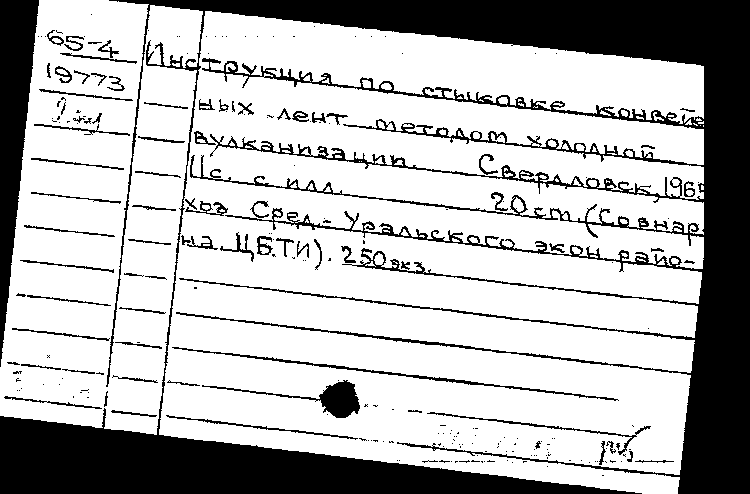 65-4
19773
Инструкция по стыковке конвейе
ных лент методом холодной
вулканизации. Свердловск, 1965
11с. с илл. 20 cm. (Совнар
хоз Сред.-Уральского экон райо-
на. ЦБТИ). 250 экз.